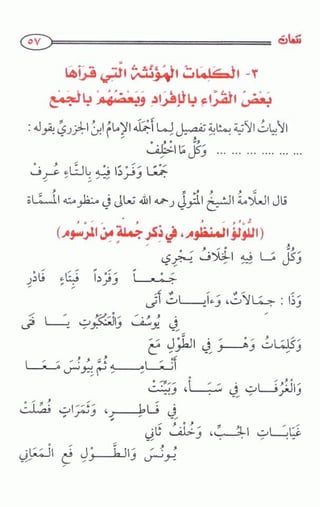 تتمات
٥٧
٣- الكلمات المؤنثة التي قرأها
بعض القراء بالإفراد وبعضهم بالجمع
الأبيات الآتية بمثابة تفصيل لما أجمله الإمام ابن الجزري بقوله :
... ... ... ... ... ... وَكُلُّ مَا اخْتُلِفْ
جَمْعًا وَفَرْدًا فِيهِ بِالتَّاءِ عُرِفْ
قال العلامة الشيخ المتولي رحمه الله تعالى في منظومته المسماة
(اللؤلؤ المنظوم، في ذكر جملة من المرسوم)
وَكُلُّ مَا فِيهِ الْخِلَافُ يَجْرِي
جَمْعًا وَفَرْدًا فَبِتَاءٍ فَادْرِ
وَذَا : جِمَالَاتٌ، وَءَايَاتٌ أَتَى
فِي يُوسُفَ وَالْعَنْكَبُوتِ يَا فَتَى
وَكَلِمَاتُ وَهْوَ فِي الطَّوْلِ مَعَ
أَنْعَامِهِ ثُمَّ بِيُونُسَ مَعَا
وَالْغُرُفَاتِ فِي سَبَأْ، وَبَيِّنَتْ
فِي فَاطِرٍ، وَثَمَرَاتٍ فُصِّلَتْ
غَيَابَاتِ الْجُبِّ، وَخُلْفُ ثَانِي
يُونُسَ وَالطَّوْلِ فَعِ الْمَعَانِي